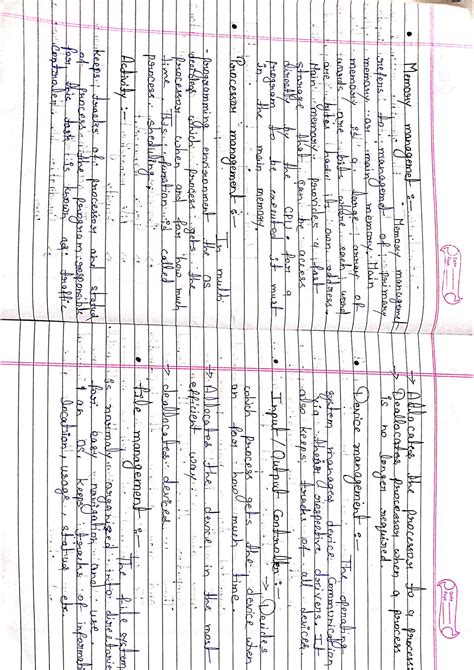 • Memory managemet :-
- Memory management
refers to managemet of primary
memory or main memory. Main
memory is a large array of
words or bits where each word
are bites had it's own address.
Main memory provides a fast
storage that can be access
directly by the CPU. for a
program to be executed it must
in the main memory.
• Processor management :-
In multi
- programming environment the OS
decides which process gets the
processor when and for how much
time. This function is called
process sheduling.
Activity :-
keeps tracks of processor and status
of process the program responsible
for this task is known as traffic
controller.
→ Addocates the processor to a process
→ Deallocates processor when a process
is no longer required.
• Device management :-
The operating
system manages device Communication
via their respective drivers. It
also keeps tracks of all devices.
• Input/Output Controller :-
→ Decides
which process gets the device when
an for how much time.
→ Allocates the device in the most
efficient way.
→ deallocates devices.
• File management :- The file system
is normaly organized into directories
for easy navigation and use.
• an OS. keeps tracks of informat
location, usage, status etc.